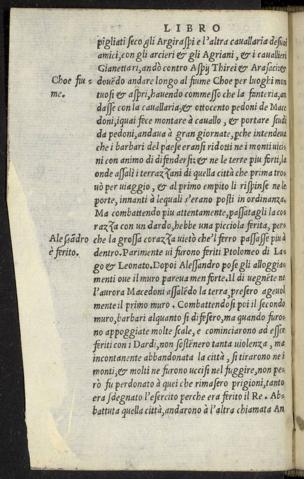 LIBRO
pigliati seco gli Argiraspi e l'altra cauallaria de suoi
amici, con gli arcieri & gli Agriani, & i cauallieri
Gianettari, andò contro Aspij Thirei & Arasaci: &
Choe fiu= deuẽdo andare longo al fiume Choe per luoghi mon
me. tuosi & aspri, hauendo commesso che la fanteria, an
dasse con la cauallaria, & ottocento pedoni de Mace
doni, iquai fece montare à cauallo, & portare scudi
da pedoni, andaua à gran giornate, pche intendeua
che i barbari del paese eransi ridotti ne i monti vici=
ni con animo di difendersi: & ne le terre piu forti, la
onde assalì i terrazzani di quella città che prima tro
uò per uiaggio, & al primo empito li rispinse ne le
porte, innanti à lequali s'erano posti in ordinanza.
Ma combattendo piu attentamente, passatagli la co=
razza con un dardo, hebbe una picciola ferita, pero
Alesãdro che la grossa corazza uietò che'l ferro passasse più à
è ferito. dentro. Parimente ui furono feriti Ptolomeo di La=
go & Leonato. Dopoi Alessandro pose gli alloggia=
menti oue il muro pareua men forte. Il dì uegnẽte ne
l'aurora Macedoni assalẽdo la terra, presero ageuol
mente il primo muro. Combattendosi poi il secondo
muro, barbari alquanto si difesero, ma quando furo=
no appoggiate molte scale, e cominciarono ad essere
feriti con i Dardi, non sostẽnero tanta uiolenza, ma
incontanente abbandonata la città, si tirarono ne i
monti, & molti ne furono uccisi nel fuggire, non pe=
rò fu perdonato à quei che rimasero prigioni, tanto
era sdegnato l'esercito perche era ferito il Re. Ab=
battuta quella città, andarono à l'altra chiamata An